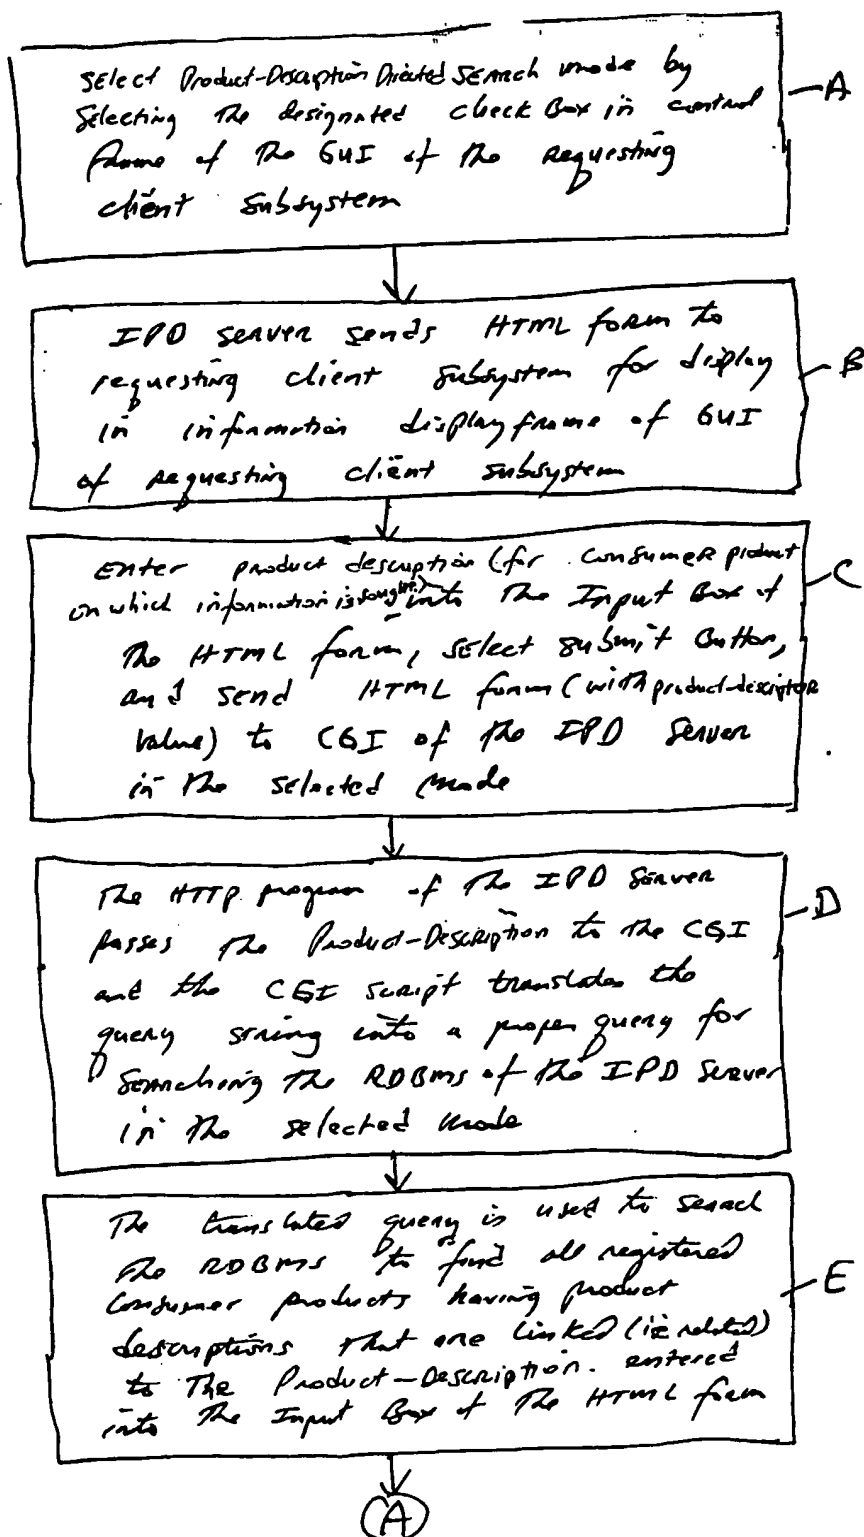 Select Product-Description Directed Search mode by
Selecting the designated check Box in control
frame of the GUI of the requesting
client subsystem
A
IPD server sends HTML form to
requesting client subsystem for display
in information display frame of GUI
of requesting client subsystem
B
Enter product description (for consumer product
on which information is sought) into the Input Box of
the HTML form, select submit Button,
and send HTML form (with product-descriptor
value) to CGI of the IPD Server
in the selected mode
C
The HTTP program of the IPD Server
passes the Product-Description to the CGI
and the CGI script translates the
query string into a proper query for
searching the RDBMS of the IPD Server
in the selected mode
D
The translated query is used to search
the RDBMS to find all registered
consumer products having product
descriptions that are linked (ie related)
to The Product-Description. entered
into the Input Box of the HTML form
E
A